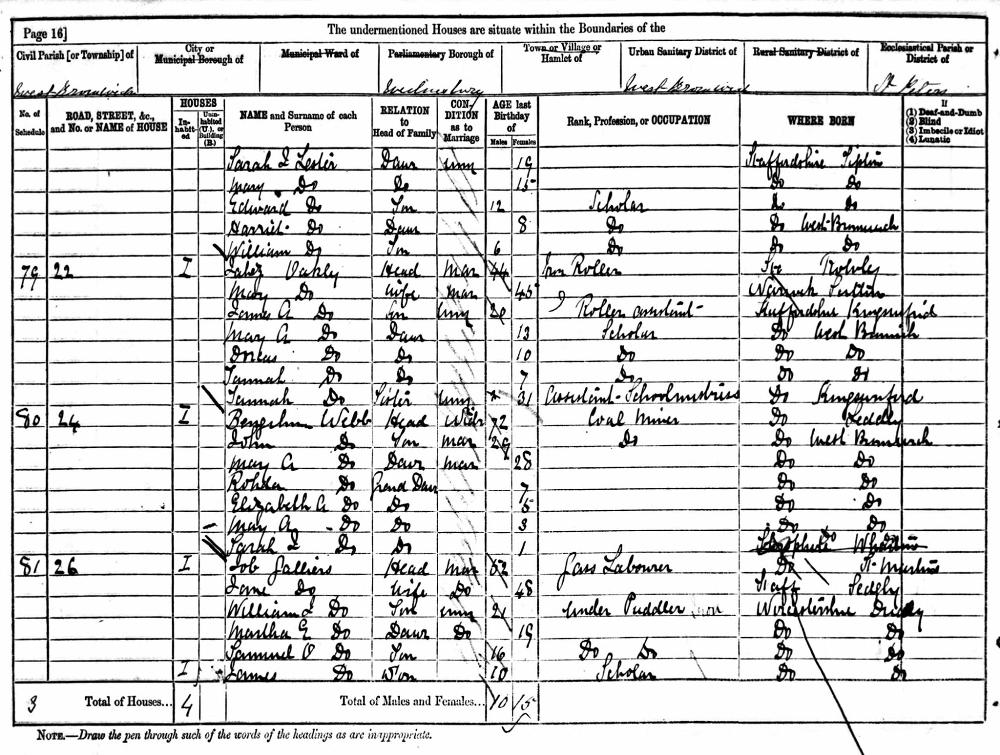 Page 16] The undermentioned Houses are situate within the Boundaries of the
Civil Parish [or Township] of City or Municipal Borough of Municipal Ward of Parliamentary Borough of Town or Village or Hamlet of Urban Sanitary District of Rural Sanitary District of Ecclesiastical Parish or District of
West Bromwich Wednesbury West Bromwich St Peters
No. of Schedule ROAD, STREET, &c., and No. or NAME of HOUSE HOUSES Inhabited Uninhabited (U.), or Building (B.) NAME and Surname of each Person RELATION to Head of Family CONDITION as to Marriage AGE last Birthday of Males Females Rank, Profession, or OCCUPATION WHERE BORN If (1) Deaf-and-Dumb (2) Blind (3) Imbecile or Idiot (4) Lunatic
Sarah J Lester Daur unm 19 Staffordshire Tipton
Mary Do Do 15 Do Do
Edward Do Son 12 Scholar Do Do
Harriet Do Daur 8 Do Do West Bromwich
William Do Son 6 Do Do Do
79 22 I Jabez Oakly Head Mar 44 Iron Roller Rowley
Mary Do Wife Mar 45 Warwick Sutton
James A Do Son Unm 20 Roller assistant Staffordshire Kingswinford
Mary A Do Daur 13 Scholar Do West Bromwich
Dorcas Do Do 10 Do Do Do
Hannah Do Do 7 Do Do Do
Hannah Do Sister Unm 31 Assistant Schoolmistress Do Kingswinford
80 24 I Benjamin Webb Head Widr 72 Coal Miner Do
John Do Son Mar 29 Do Do West Bromwich
Mary A Do Daur Mar 28 Do Do
Rohda Do Grand Daur 7 Do Do
Elizabeth A Do Do 5 Do Do
May A Do Do 3 Do Do
Sarah J Do Do 1
81 26 I Job Jalliers Head Mar 52 Gass Labourer Do St Martins
Jane Do Wife Do 48 Staff Sedgly
William Do Son unm 21 Under Puddler iron Worcestershire Dudley
Martha E Do Daur Do 19 Do Do
Samuel O Do Son 16 Do Do Do Do
I James Do Son 10 Scholar Do Do
3 Total of Houses... 4 Total of Males and Females... 10 15
NOTE.—Draw the pen through such of the words of the headings as are inappropriate.